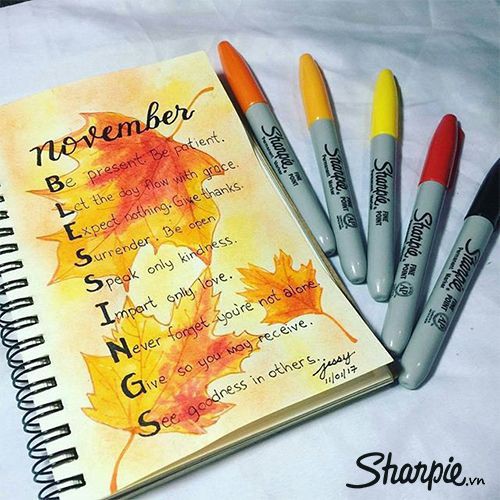 november
Be present. Be patient.
Let the day flow with grace.
Expect nothing. Give thanks.
Surrender. Be open
Speak only kindness.
Impart only love.
Never forget you're not alone.
Give so you may receive.
See goodness in others.
jessy
11/01/17
Sharpie
FINE POINT
Sharpie
FINE POINT
Sharpie
FINE POINT
Sharpie
FINE POINT
Sharpie
Sharpie.vn